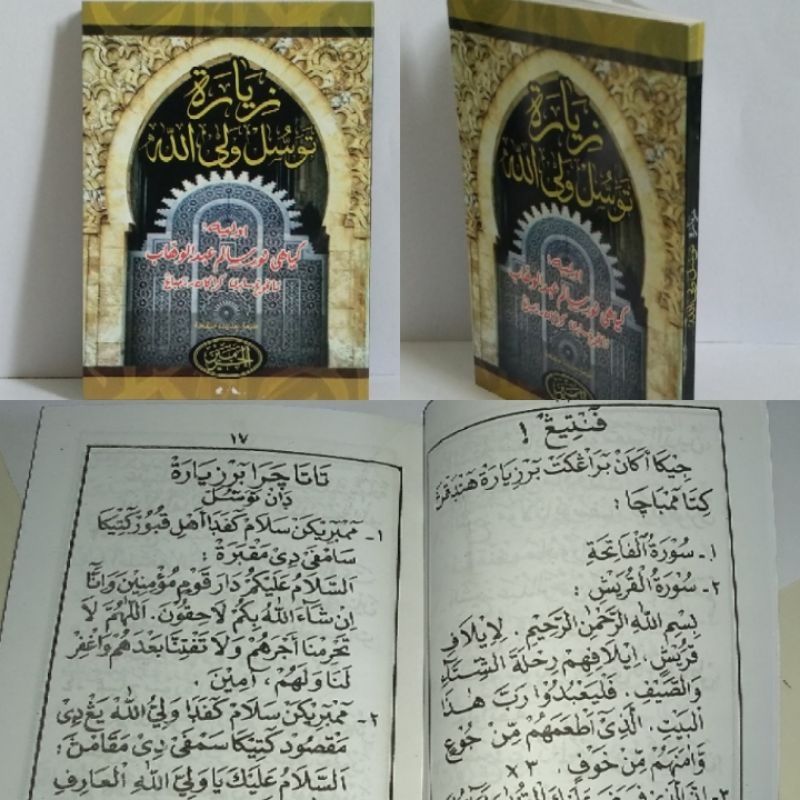 زيارة
توسل ولي الله
اوليه:
كياهي نور سالم عبد الوهاب
الحرمين
زيارة
توسل ولي الله
اوليه:
كياهي نور سالم عبد الوهاب
١٧
تَاتَا چَرَا بَرْزِيَارَةْ
دَانْ تَوَسُّلْ
١ - مَمْبَرِيكَنْ سَلَامْ كَفَدَا أَهْلِ قُبُوْرْ كَتِيْكَا
سَامْفَيْ دِيْ مَقْبَرَةْ :
اَلسَّلَامُ عَلَيْكُمْ دَارَ قَوْمٍ مُؤْمِنِيْنَ وَاِنَّا
اِنْ شَاءَ اللهُ بِكُمْ لَاحِقُوْنَ. اَللّٰهُمَّ لَا
تَحْرِمْنَا أَجْرَهُمْ وَلَا تَفْتِنَّا بَعْدَهُمْ وَاغْفِرْ
لَنَا وَلَهُمْ ، اٰمِيْنَ .
٢ - مَمْبَرِيْكَنْ سَلَامْ كَفَدَا وَلِيُّ اللهْ يَڠْ دِيْ
مَقْصُوْدْ كَتِيْكَا سَمْفَيْ دِيْ مَقَامْنَ :
اَلسَّلَامُ عَلَيْكَ يَا وَلِيَّ اللهِ الْعَارِفِ
فَنْتِيْڠْ !
جِيْكَا أَكَانْ بَرَاڠْكَتْ بَرْزِيَارَةْ هَنْدَقْنَ
كِتَا مَمْبَاچَا :
١ - سُوْرَةُ الْفَاتِحَةِ
٢ - سُوْرَةُ الْقُرَيْشِ :
بِسْمِ اللهِ الرَّحْمٰنِ الرَّحِيْمِ . لِاِيْلَافِ
قُرَيْشٍ . اِيْلَافِهِمْ رِحْلَةَ الشِّتَاءِ
وَالصَّيْفِ . فَلْيَعْبُدُوْا رَبَّ هٰذَا
الْبَيْتِ . الَّذِيْ أَطْعَمَهُمْ مِنْ جُوْعٍ
وَاٰمَنَهُمْ مِنْ خَوْفٍ . × ٣